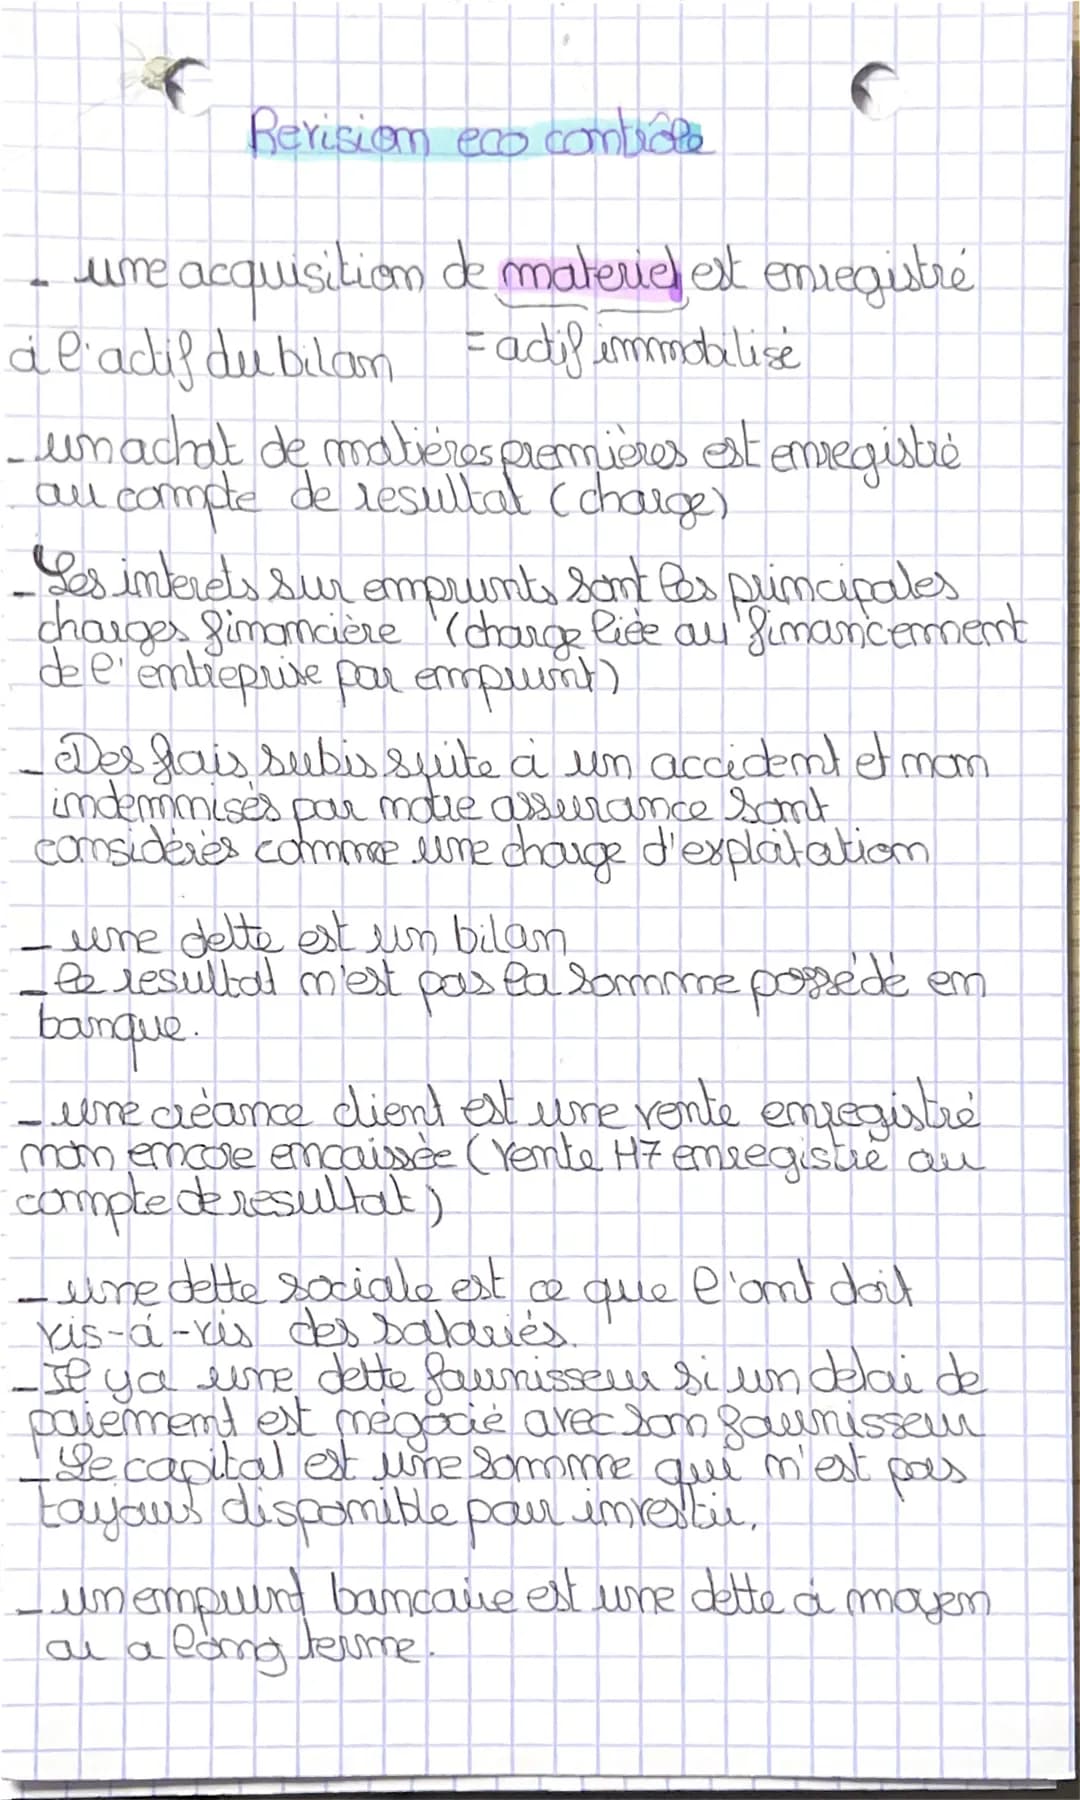 Revision eco contrôle
- une acquisition de materiel est enregistré
à l'actif du bilan = actif immobilisé
- un achat de matières premières est enregistré
au compte de resultat (charge)
- Les interets sur emprunts sont les principales
charges financière (charge liée au financement
de l'entreprise par emprunt)
- Des frais subis suite à un accident et non
indemnisés par notre assurance sont
considérés comme une charge d'exploitation
- une dette est un bilan
- le resultat n'est pas la somme possédé en
banque.
- une créance client est une vente enregistré
non encore encaissée (Vente H7 enregistré au
compte de resultat)
- une dette sociale est ce que l'ont doit
vis-à-vis des salariés.
- Il ya une dette fournisseur si un delai de
paiement est négocié avec son fournisseur
- Le capital est une somme qui n'est pas
toujours disponible pour investir.
- un emprunt bancaire est une dette à moyen
ou a long terme.